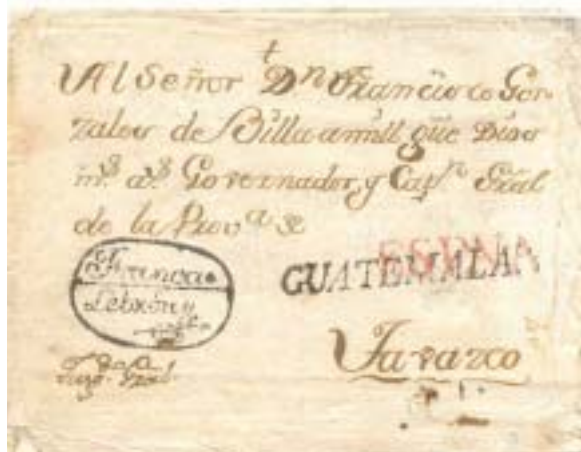 Al Señor Dn Francisco Gon-
zales de Billaamil que Dios
ms. as. Governador, y Capn. Gral
de la Prova. de
Franca
ESPÑA
GUATEMALA
Tavazco